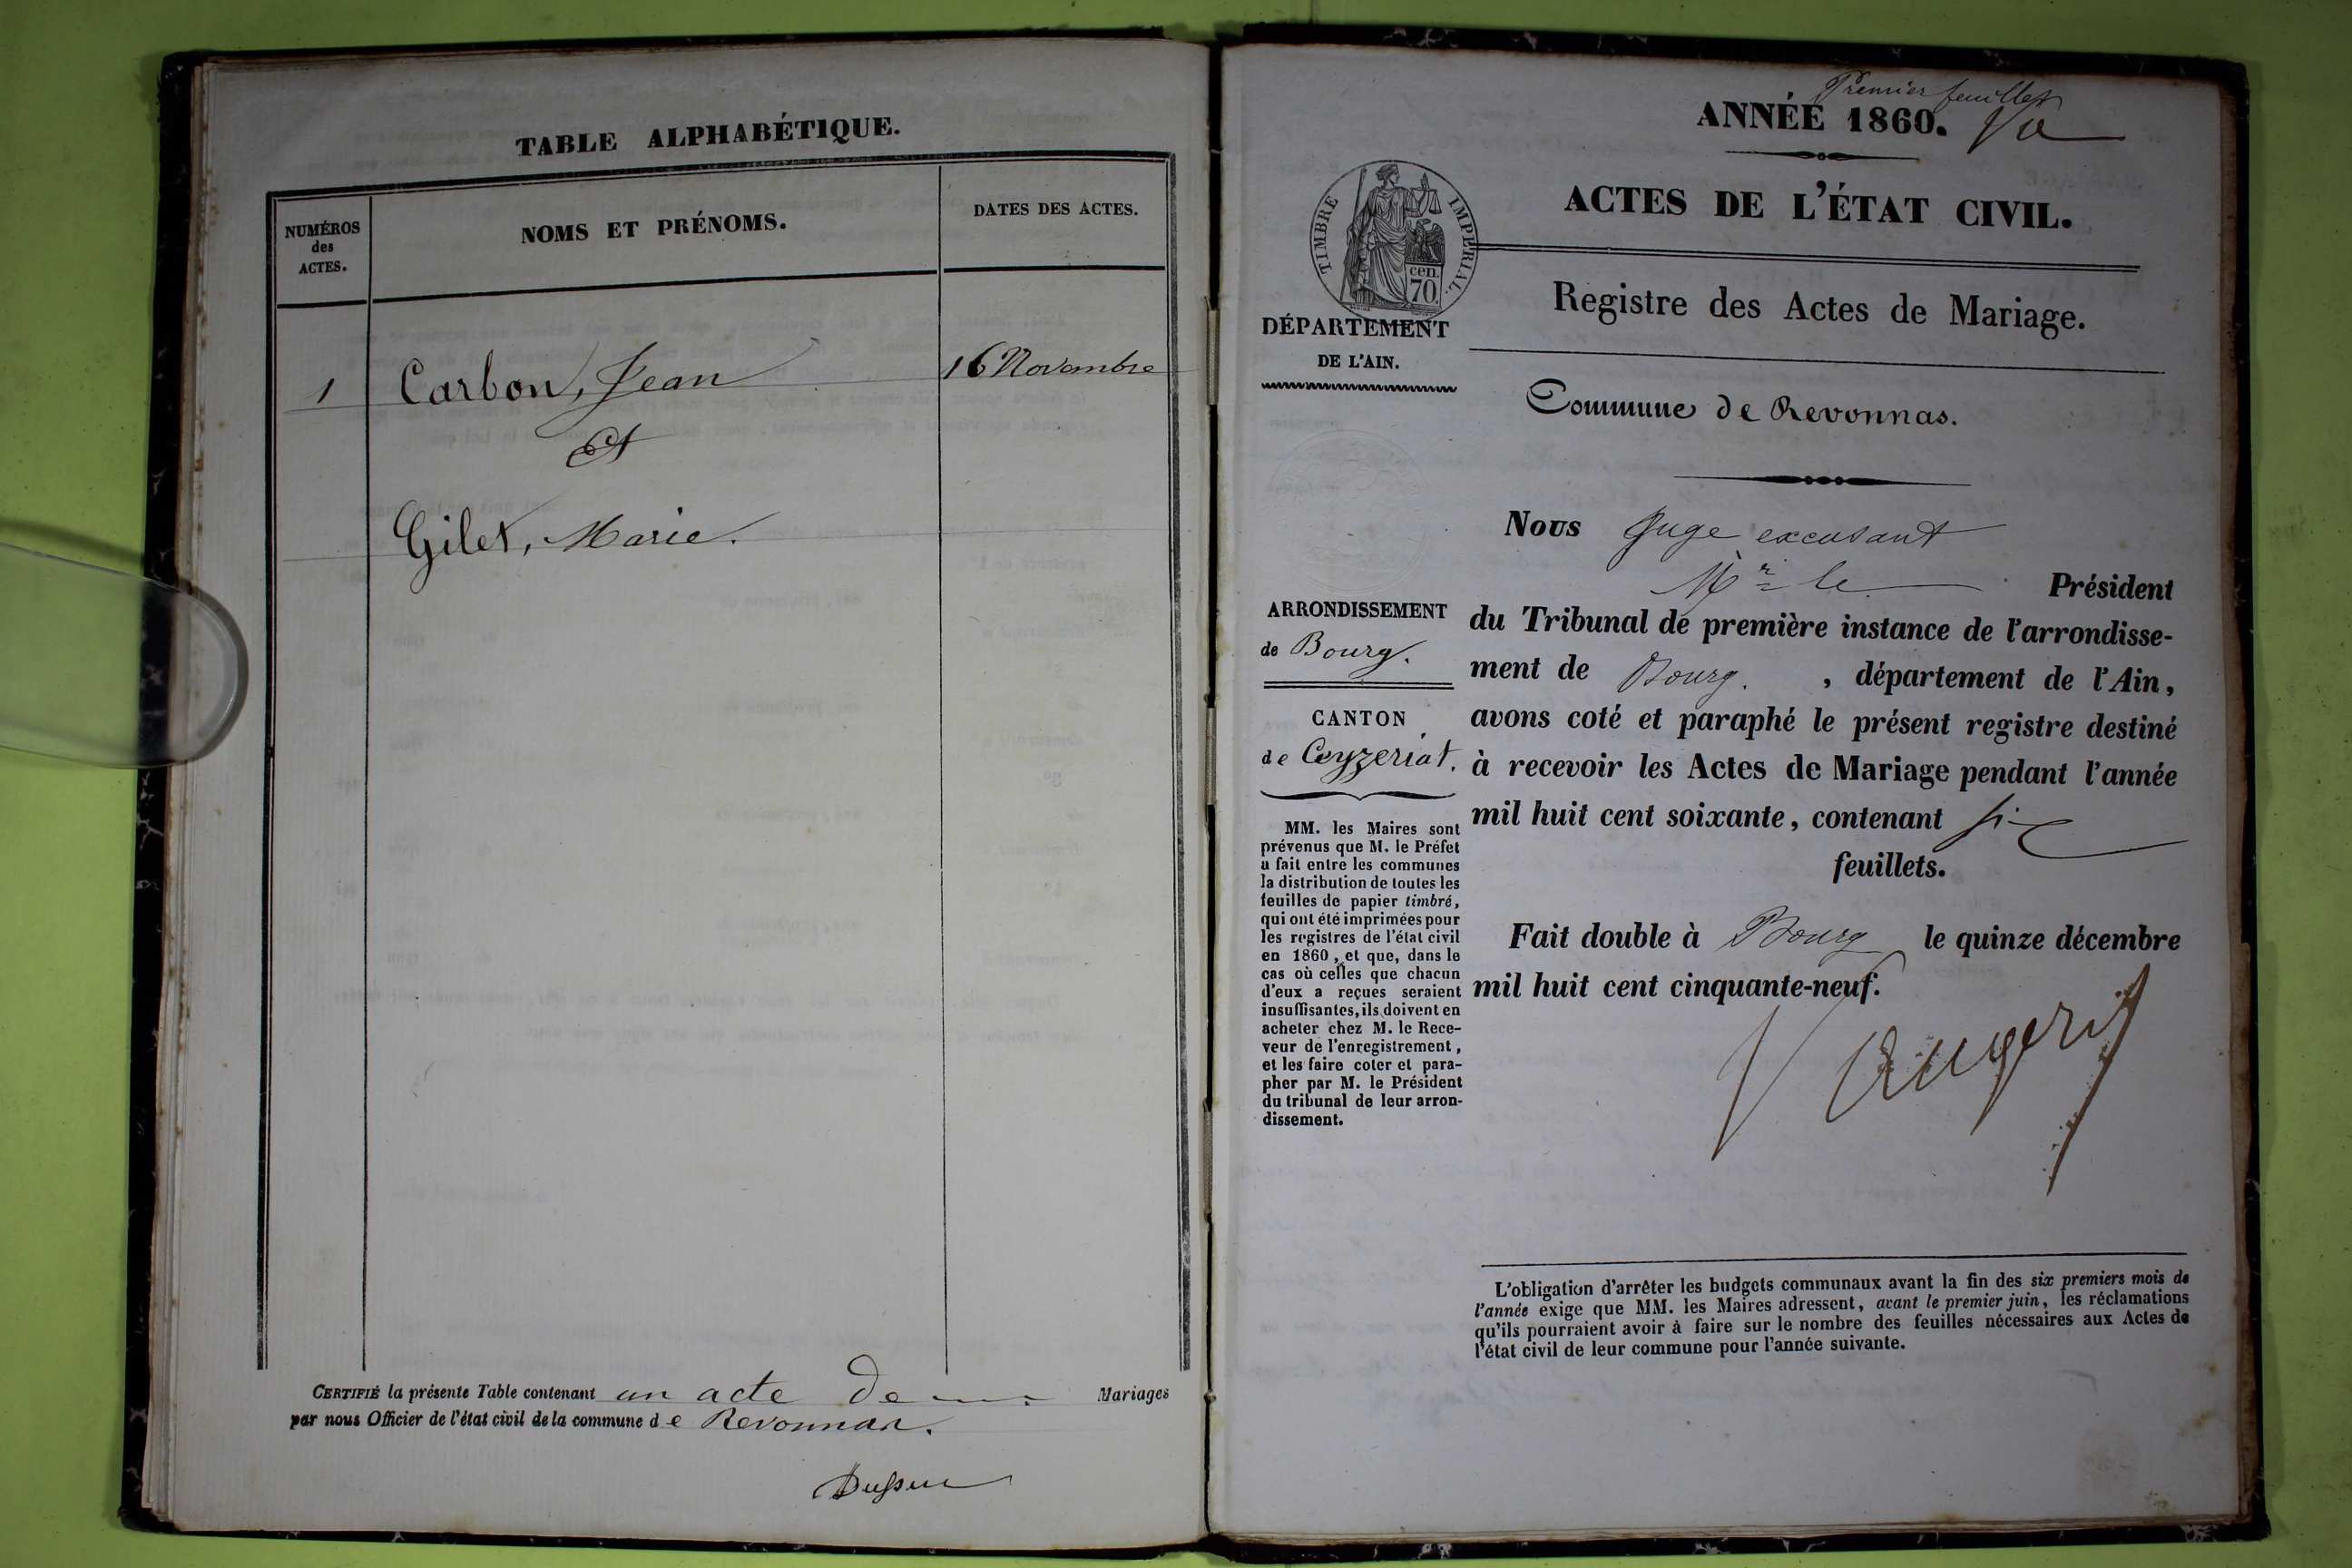 TABLE ALPHABÉTIQUE.
NUMÉROS
des
ACTES.
NOMS ET PRÉNOMS.
DATES DES ACTES.
1 Carbon, Jean 16 Novembre
Et
Gilet, Marie.
CERTIFIÉ la présente Table contenant un acte de Mariages
par nous Officier de l'état civil de la commune de Revonnas.
Premier feuillet
ANNÉE 1860.
ACTES DE L'ÉTAT CIVIL.
TIMBRE IMPÉRIAL.
cen.
70.
Registre des Actes de Mariage.
DÉPARTEMENT
DE L'AIN.
Commune de Revonnas.
Nous Juge excusant
Mr le Président
du Tribunal de première instance de l'arrondisse-
ment de Bourg. , département de l'Ain,
avons coté et paraphé le présent registre destiné
à recevoir les Actes de Mariage pendant l'année
mil huit cent soixante, contenant six
feuillets.
Fait double à Bourg le quinze décembre
mil huit cent cinquante-neuf.
ARRONDISSEMENT
de Bourg.
CANTON
de Ceyzeriat.
MM. les Maires sont
prévenus que M. le Préfet
a fait entre les communes
la distribution de toutes les
feuilles de papier timbré,
qui ont été imprimées pour
les registres de l'état civil
en 1860, et que, dans le
cas où celles que chacun
d'eux a reçues seraient
insuffisantes, ils doivent en
acheter chez M. le Rece-
veur de l'enregistrement,
et les faire coter et para-
pher par M. le Président
du tribunal de leur arron-
dissement.
L'obligation d'arrêter les budgets communaux avant la fin des six premiers mois de
l'année exige que MM. les Maires adressent, avant le premier juin, les réclamations
qu'ils pourraient avoir à faire sur le nombre des feuilles nécessaires aux Actes de
l'état civil de leur commune pour l'année suivante.